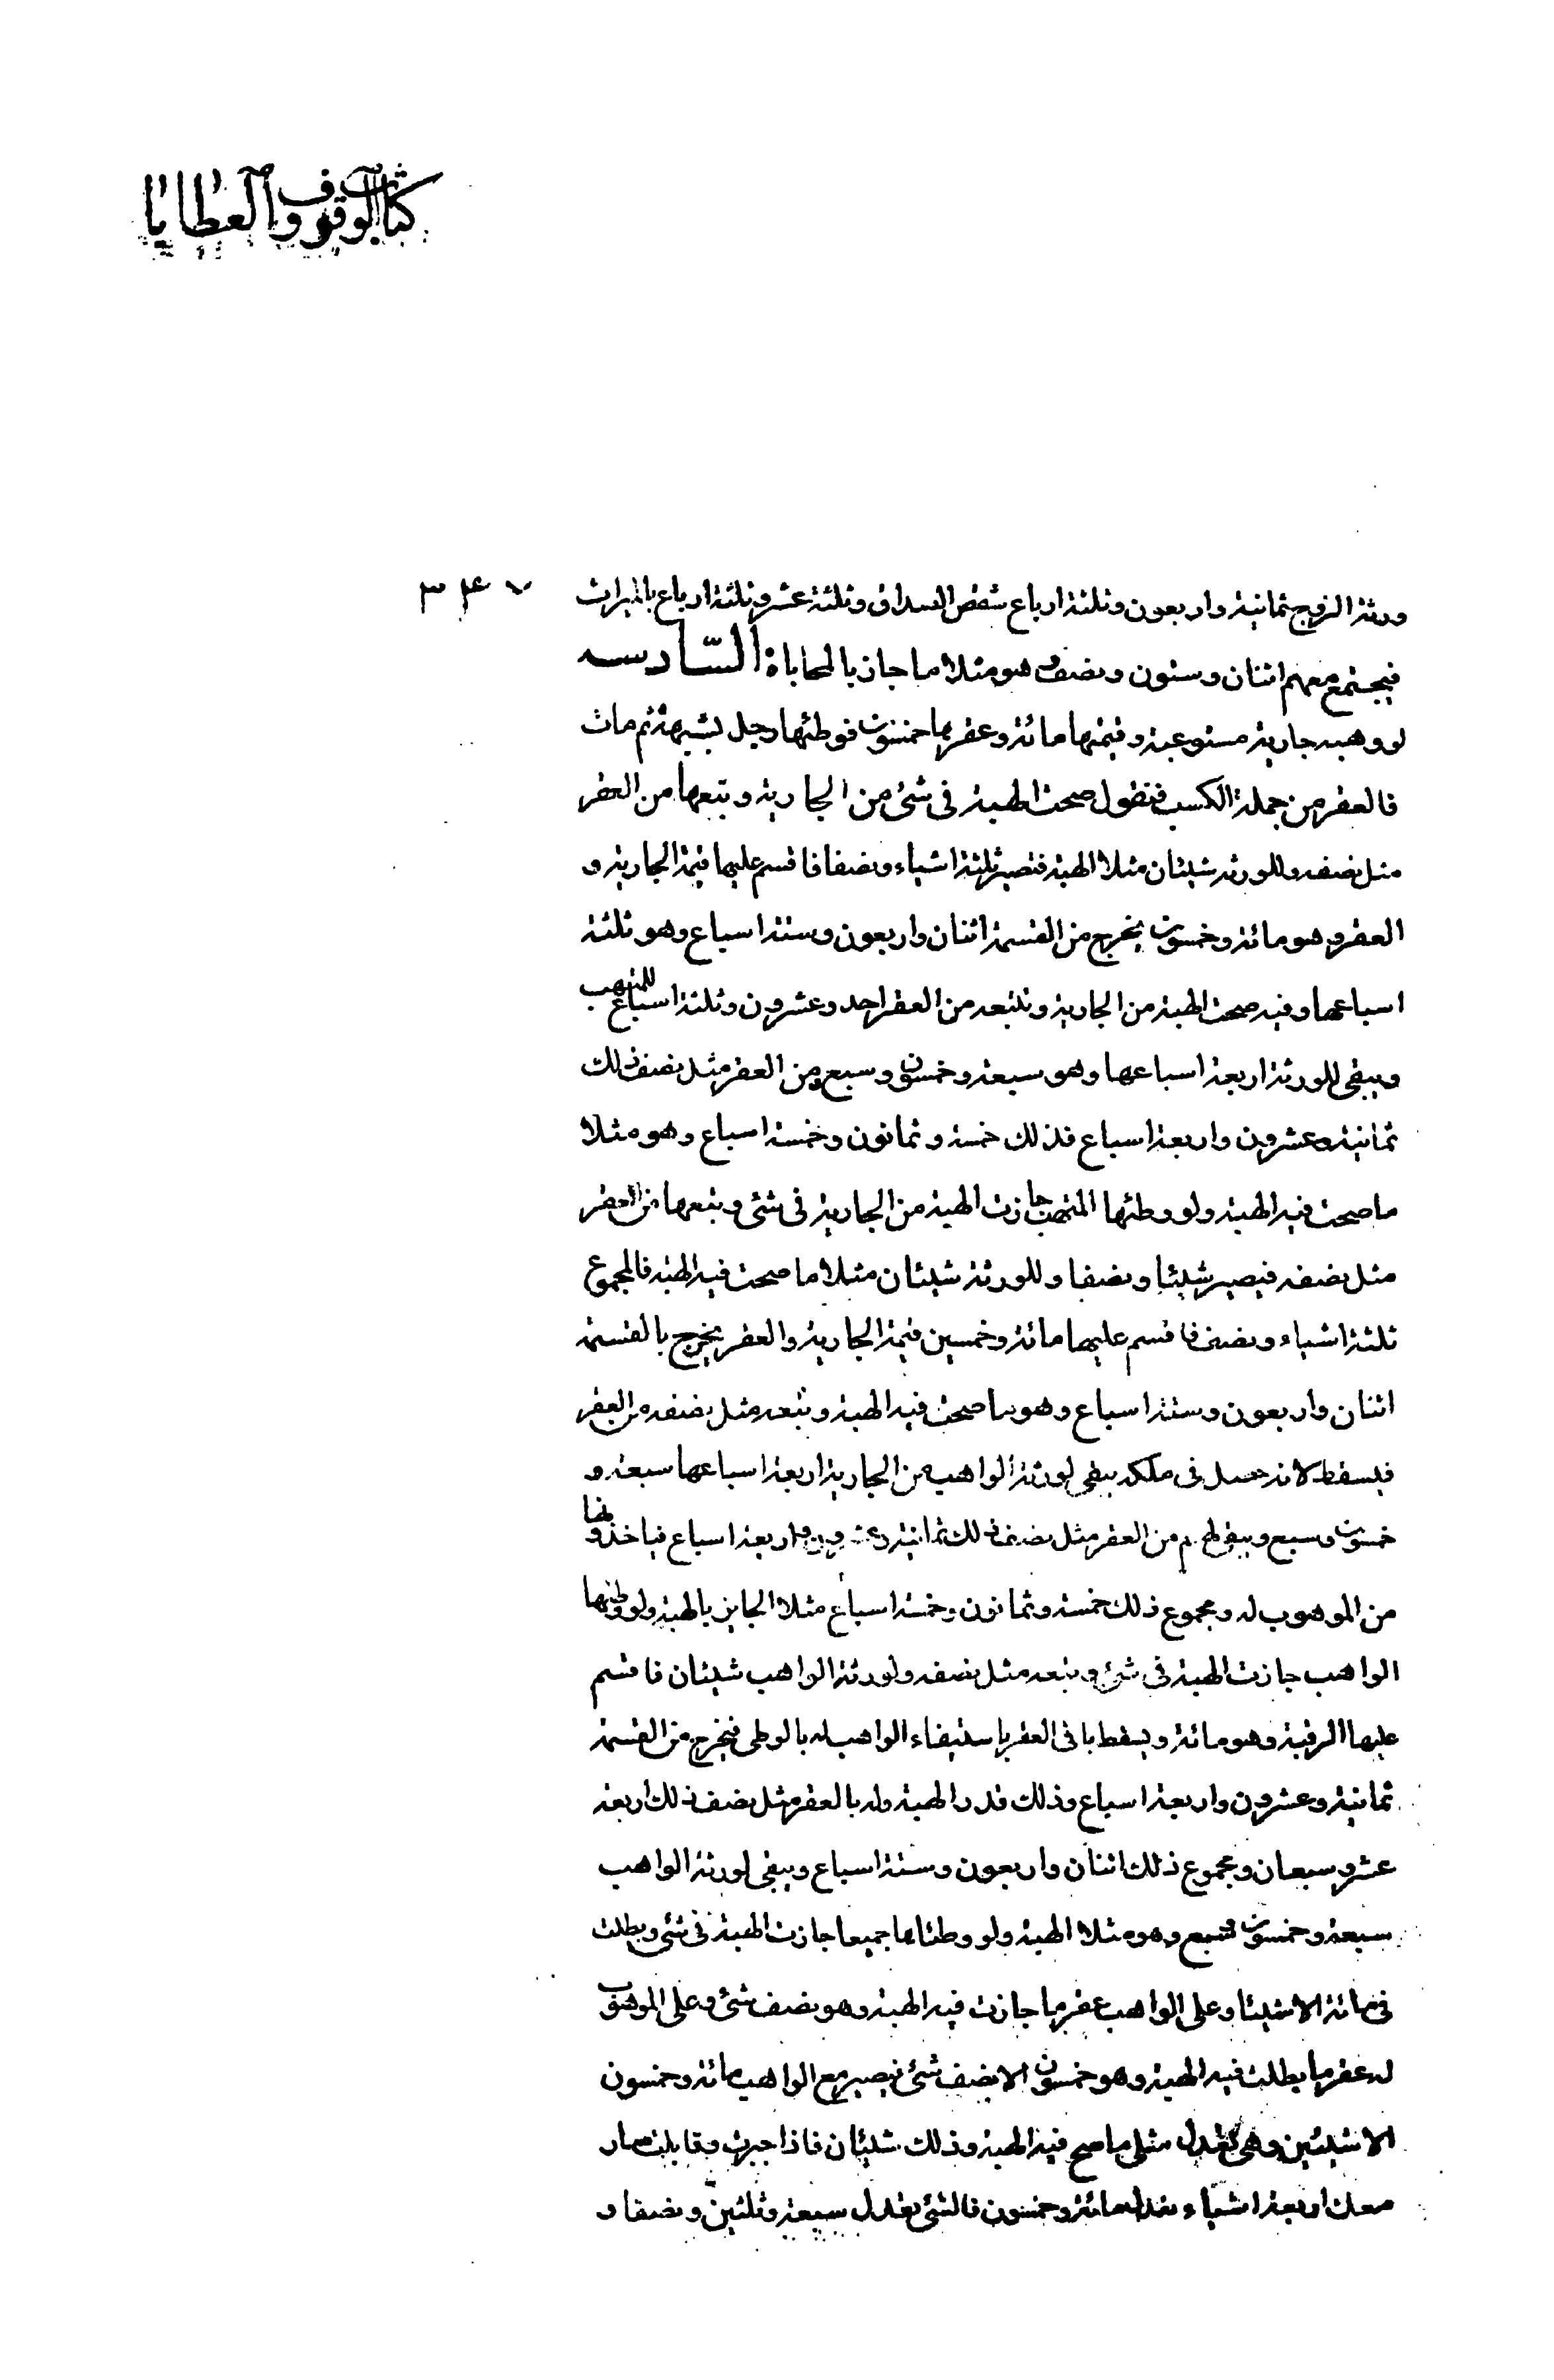 كتاب الوقوف والعطايا
٣٤٧
ورثة الزوج ثمانية واربعون وثلثة ارباع شقص الصداق وثلثة عشر وثلثة ارباع بالميراث
فيجتمع معهم اثنان وستون ونصف هو مثلا ما جاز بالمحاباة السّادسه
لو وهبه جارية مستوعبة وقيمتها مائة وعقرها خمسون فوطئها رجل بشبهة ثم مات
فالعقر من جملة الكسب فنقول صحت الهبة فى شئ من الجارية ويتبعها من العقر
مثل نصفه وللورثة شيئان مثلا الهبة فتصير ثلثة اشياء ونصفا فاقسم عليها قيمة الجارية و
العقر وهو مائة وخمسون يخرج من القسمة اثنان واربعون وستة اسباع وهو ثلثة
اسباعها وفيه صحت الهبة من الجارية وتتبعه من العقر احد وعشرون وثلثة اسباع للمتهب
ويبقى للورثة اربعة اسباعها وهو سبعة وخمسون وسبع ومن العقر مثل نصف ذلك
ثمانية وعشرون واربعة اسباع فذلك خمسة وثمانون وخمسة اسباع وهو مثلا
ما صحت فيه الهبة ولو وطئها المتهب جازت الهبة من الجارية فى شئ ويتبعها من العقر
مثل نصفه فيصير شيئا ونصفا وللورثة شيئان مثلا ما صحت فيه الهبة فالمجموع
ثلثة اشياء ونصف فاقسم عليها مائة وخمسين قيمة الجارية والعقر يخرج بالقسمة
اثنان واربعون وستة اسباع وهو ما صحت فيه الهبة ويتبعه مثل نصفه من العقر
فيسقط لانه حصل فى ملكه يبقى لورثة الواهب من الجارية اربعة اسباعها سبعة و
خمسون وسبع ويبقى لهم من العقر مثل نصف ذلك ثمانية وعشرون واربعة اسباع فياخذونها
من الموهوب له ومجموع ذلك خمسة وثمانون وخمسة اسباع مثلا الجايز بالهبة ولو وطئها
الواهب جازت الهبة فى شئ ويتبعه مثل نصفه ولورثة الواهب شيئان فاقسم
عليها الرقبة وهو مائة ويسقط باقى العقر باستيفاء الواهب له بالوطى فيخرج من القسمة
ثمانية وعشرون واربعة اسباع وذلك قدر الهبة وله بالعقر مثل نصف ذلك اربعة
عشر وسبعان ومجموع ذلك اثنان واربعون وستة اسباع ويبقى لورثة الواهب
سبعة وخمسون وسبع وهو مثلا الهبة ولو وطئاها جميعا جازت الهبة فى شئ وبطلت
فى مائة الا شيئا وعلى الواهب عقر ما جازت فيه الهبة وهو نصف شئ وعلى الموهوب
له عقر ما بطلت فيه الهبة وهو خمسون الا نصف شئ فيصير مع الواهب مائة وخمسون
الا شيئين وهى تعدل مثلى ما صح فيه الهبة وذلك شيئان فاذا جبرت وقابلت صار
معك اربعة اشياء تعدل مائة وخمسون فالشئ يعدل سبعة وثلثين ونصفا و